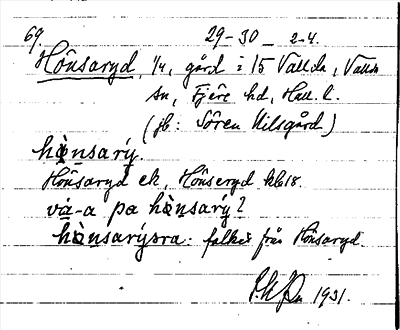 69. 29-30 – 2-4.
Hönsaryd, 1/4, gård i 15 Vallda, Vallda
sn, Fjäre hd, Hall. l.
(jb: Sören Nilsgård)
hö̀nsarý.
Hönsaryd ek, Hönseryd
va-a pa hö̀nsarý?
hö̀nsarýsra: folket från Hönsaryd.
1931.